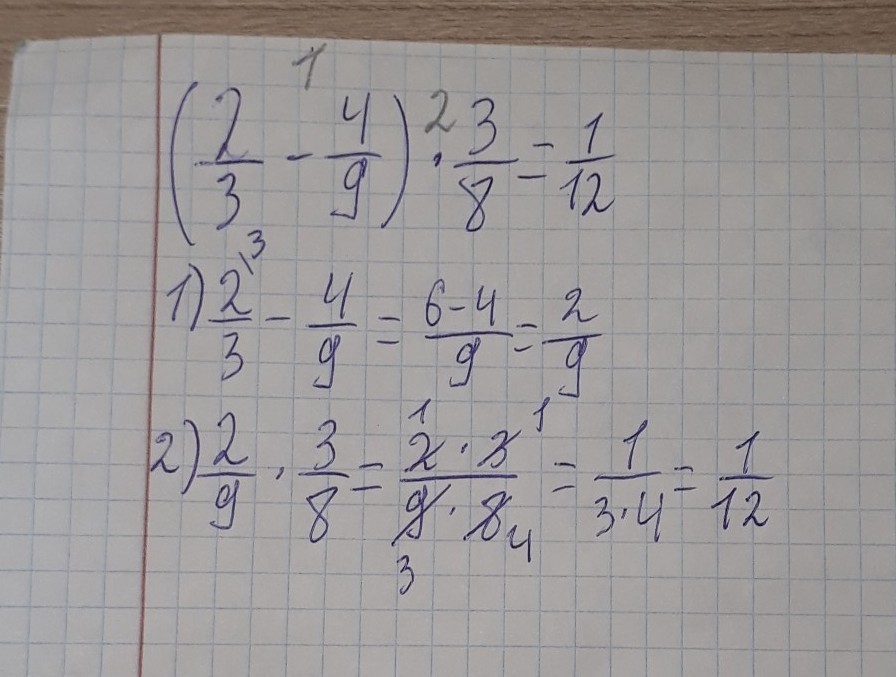 (2/3 - 4/9) · 3/8 = 1/12
1) 2/3 - 4/9 = 6-4/9 = 2/9
2) 2/9 · 3/8 = 2·3/9·8 = 1/3·4 = 1/12